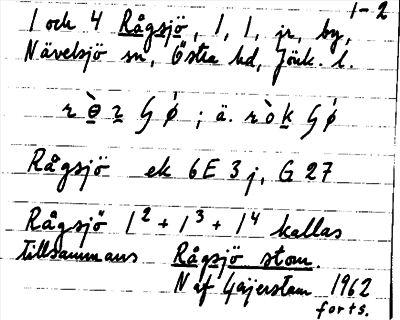 1-2
1 och 4 Rågsjö, 1, 1, jr, by,
Nävelsjö sn, Östra hd, Jönk. l.
Rågsjö ek 6E 3j, G 27
Rågsjö 1² + 1³ + 1⁴ kallas
tillsammans Rågsjö stom.
N af Gäijerstam 1962
forts.